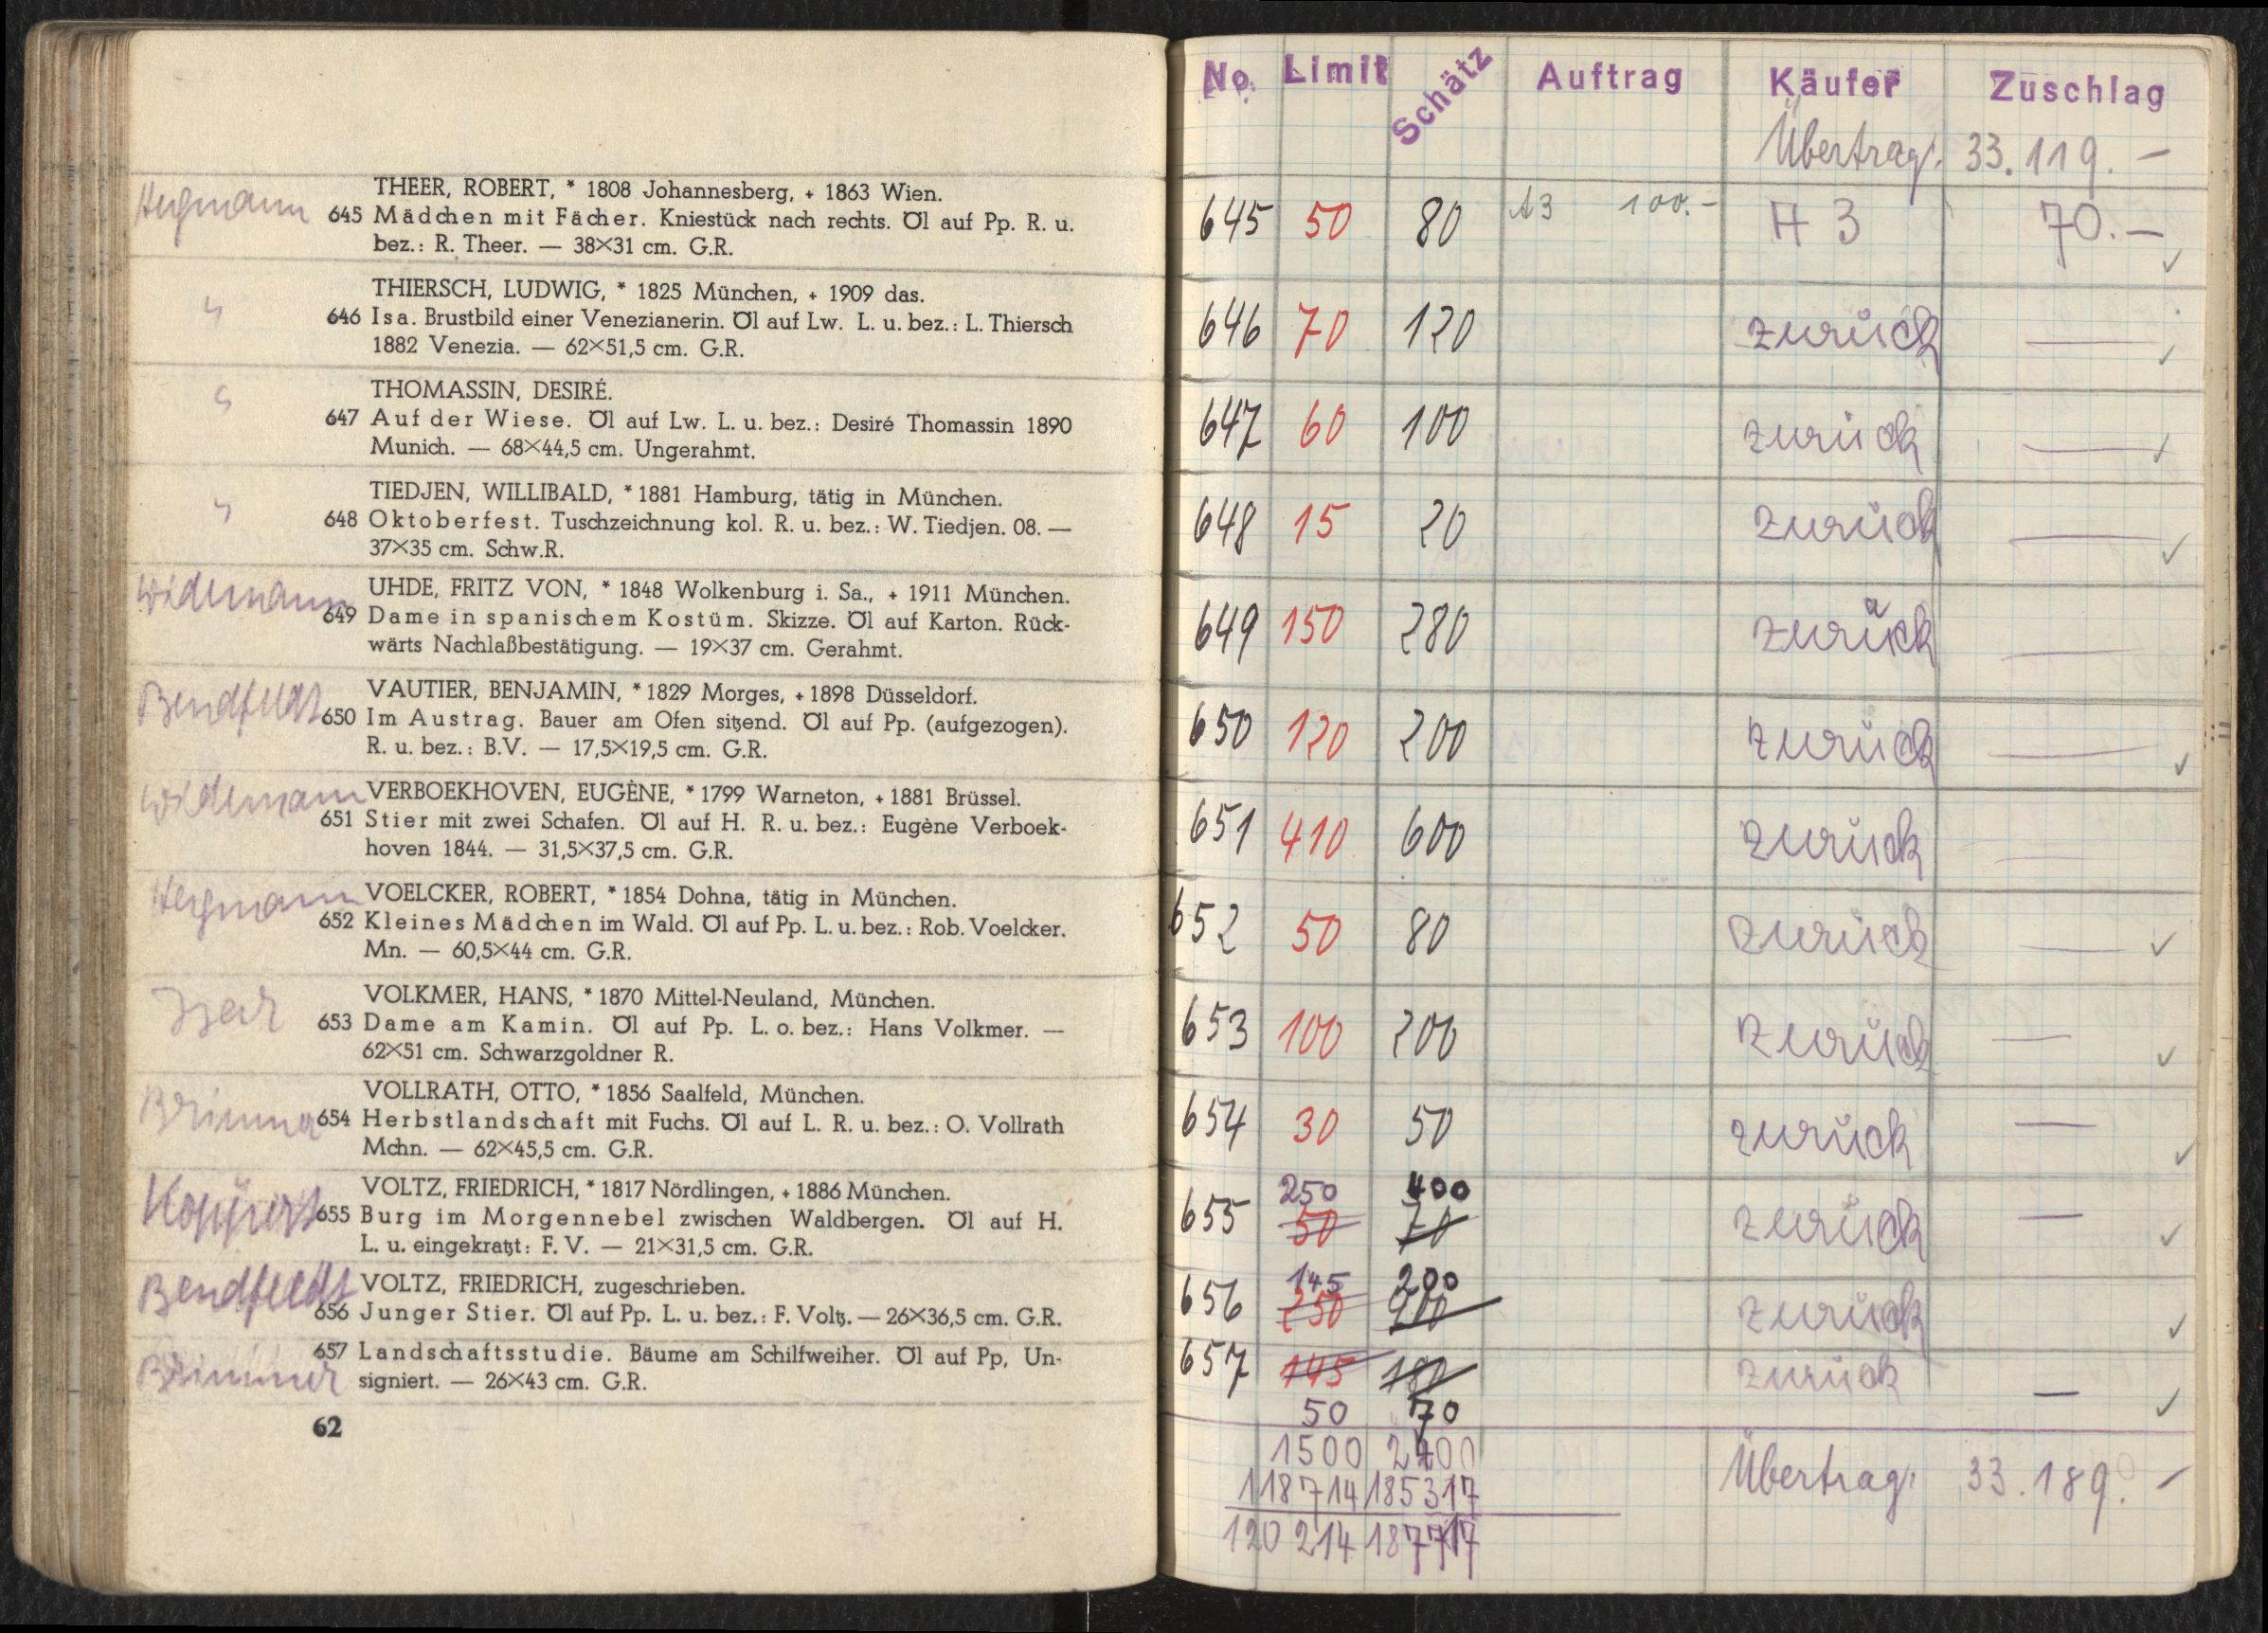 THEER, ROBERT, * 1808 Johannesberg, + 1863 Wien.
645 Mädchen mit Fächer. Kniestück nach rechts. Öl auf Pp. R. u.
bez.: R. Theer. — 38×31 cm. G.R.
THIERSCH, LUDWIG, * 1825 München, + 1909 das.
646 Isa. Brustbild einer Venezianerin. Öl auf Lw. L. u. bez.: L. Thiersch
1882 Venezia. — 62×51,5 cm. G.R.
THOMASSIN, DESIRÉ.
647 Auf der Wiese. Öl auf Lw. L. u. bez.: Desiré Thomassin 1890
Munich. — 68×44,5 cm. Ungerahmt.
TIEDJEN, WILLIBALD, * 1881 Hamburg, tätig in München.
648 Oktoberfest. Tuschzeichnung kol. R. u. bez.: W. Tiedjen. 08. —
37×35 cm. Schw.R.
Widemann UHDE, FRITZ VON, * 1848 Wolkenburg i. Sa., + 1911 München.
649 Dame in spanischem Kostüm. Skizze. Öl auf Karton. Rück-
wärts Nachlaßbestätigung. — 19×37 cm. Gerahmt.
Bendfeldt VAUTIER, BENJAMIN, * 1829 Morges, + 1898 Düsseldorf.
650 Im Austrag. Bauer am Ofen sitzend. Öl auf Pp. (aufgezogen).
R. u. bez.: B.V. — 17,5×19,5 cm. G.R.
Widemann VERBOEKHOVEN, EUGÈNE, * 1799 Warneton, + 1881 Brüssel.
651 Stier mit zwei Schafen. Öl auf H. R. u. bez.: Eugène Verboek-
hoven 1844. — 31,5×37,5 cm. G.R.
VOELCKER, ROBERT, * 1854 Dohna, tätig in München.
652 Kleines Mädchen im Wald. Öl auf Pp. L. u. bez.: Rob. Voelcker.
Mn. — 60,5×44 cm. G.R.
VOLKMER, HANS, * 1870 Mittel-Neuland, München.
653 Dame am Kamin. Öl auf Pp. L. o. bez.: Hans Volkmer. —
62×51 cm. Schwarzgoldner R.
VOLLRATH, OTTO, * 1856 Saalfeld, München.
654 Herbstlandschaft mit Fuchs. Öl auf L. R. u. bez.: O. Vollrath
Mchn. — 62×45,5 cm. G.R.
VOLTZ, FRIEDRICH, * 1817 Nördlingen, + 1886 München.
655 Burg im Morgennebel zwischen Waldbergen. Öl auf H.
L. u. eingekratzt: F. V. — 21×31,5 cm. G.R.
Bendfeldt VOLTZ, FRIEDRICH, zugeschrieben.
656 Junger Stier. Öl auf Pp. L. u. bez.: F. Voltz. — 26×36,5 cm. G.R.
657 Landschaftsstudie. Bäume am Schilfweiher. Öl auf Pp, Un-
signiert. — 26×43 cm. G.R.
62
No. Limit Schätz Auftrag Käufer Zuschlag
Übertrag: 33.119.—
645 50 80 A3 100.— A 3 70.—
646 70 120 zurück —
647 60 100 zurück —
648 15 20 zurück —
649 150 280 zurück —
650 120 200 zurück —
651 410 600 zurück —
652 50 80 zurück —
653 100 200 zurück —
654 30 50 zurück —
250 400
655 50 70 zurück —
145 200
656 250 400 zurück
657 145 180 zurück —
50 70
1500 2400
118714 185317
Übertrag: 33.189.—
120214 187717